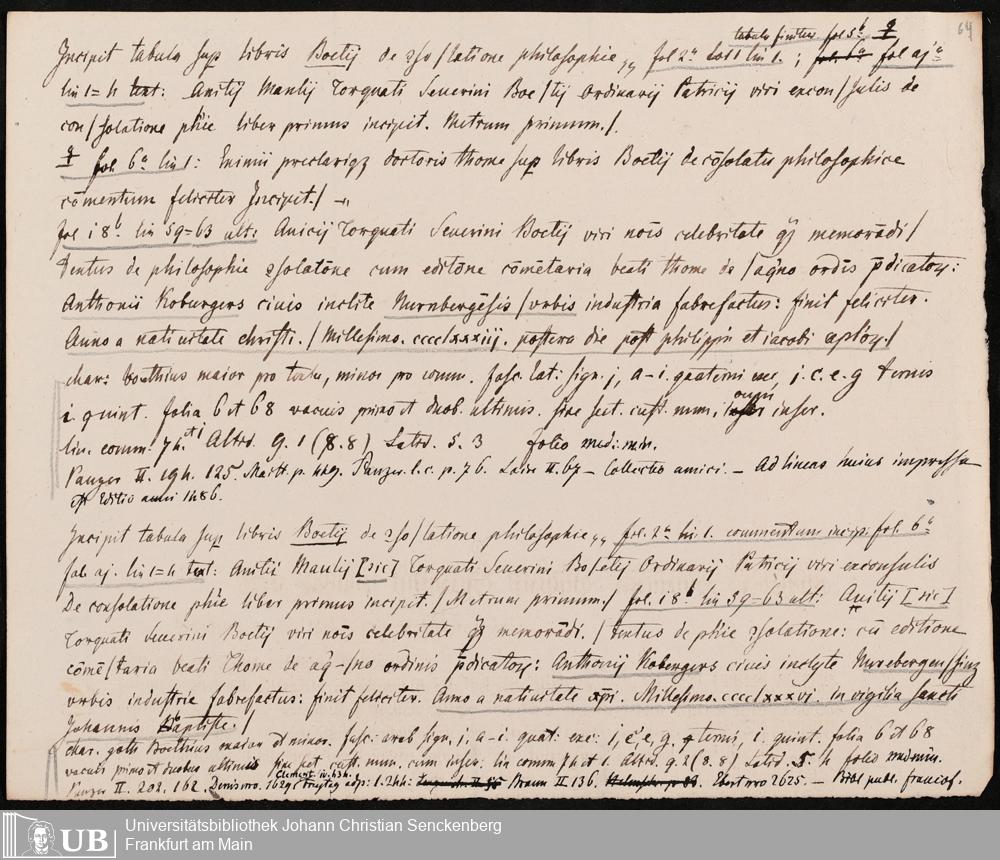 tabula finitur fol 5b 64
Incipit tabula sup libris Boetij de 2so/latione philosophie,, fol 2a col 1 lin 1. ; fol. 6a fol aja
lin 1=4 text: Anitij Manlij Torquati Seuerini Boe/tij Ordinarij Patricij viri excon/sulis de
con/solatione phie liber primus incipit. Metrum primum./.
fol 6a lin 1: Eximii preclarigz doctoris thome sup libris Boetij de cōsolatu philosophice
cōmentum feliciter Incipit./
fol i 8b. lin 59=63 ult: Anicij Torquati Seuerini Boetij viri nōis celebritate qz memorādi/
Textus de philosophie 2solatōne cum editōne cōmētaria beati thome de /aqno ordīs p̄dicatoꝝ:
Anthonii Koburgers ciuis inclite Nurnbergēsis /vrbis industria fabrefactus: finit feliciter.
Anno a natiuitate christi. /Millesimo. cccclxxxiij. postera die post philippi et iacobi aploꝝ./
char: Boethius maior pro textu, minor pro comm. fasc. lat: sign. j, a-i. quaterni exc, j. c. e. g ternis
i. quint. folia 6 et 68 vacuis primo et duob. ultimis. sine sect. cust. num, inser.
lin. comm. 74 et 1 Altid. 9. 1 (8.8) Latid. 5. 3 folio med: min.
Panzer II. 194. 125. Maitt. p. 449. Panzer. l. c. p. 76. Laire II. 67 – Collectio amici. – Ad lineas huius impressa
est Editio anni 1486.
Incipit tabula sup libris Boetij de 2so/latione philosophie,, fol. 2a lin 1. commentum incip. fol. 6a
fol aj. lin 1=4 text: Anitii Manlij [sic] Torquati Seuerini Bo/etij Ordinarij Patricij viri exconsulis
De consolatione phie liber primus incipit. /Metrum primum./ fol. i 8b lin 39=63 ult: Anitij [sic]
Torquati Seuerini Boetij viri nōis celebritate qz memorādi. /Textus de phie 2solatione: cū editione
cōmē/taria beati Thome de aq-/no ordinis p̄dicatoꝝ: Anthonij Kobergers ciuis inclyte Nurenbergen/siuz
vrbis industria fabrefactus: finit feliciter. Anno a natiuitate xpi. Millesimo. cccclxxxvi. in vigilia sancti
Johannis Baptiste./
char. goth Boethius maior et minor. fasc: arab sign. j, a-i. quat: exc: i, c e, g, ternis, i. quint. folia 6 et 68
vacuis primo et duobus ultimis sine sect. cust. num. cum inser. lin comm 74 et 1. Altid. 9. 2 (8.8) Latid. 5. 4 folio med: min.
Panzer II. 202. 162. Denis nro. 1629. Clement. iv. 434. Freytag adp: 1. 244: Braun II 136. Ebert nro 2625. – Bibl publ. francof.
UB Universitätsbibliothek Johann Christian Senckenberg
Frankfurt am Main